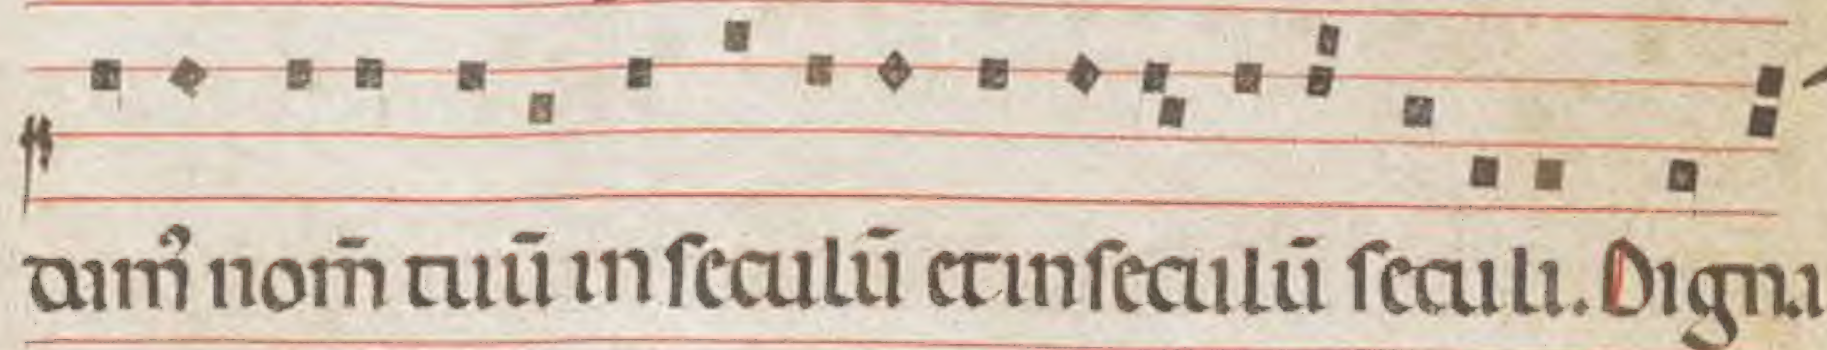 damꝰ nom̄ tuū in ſeculū et in ſeculū ſeculi. Digna